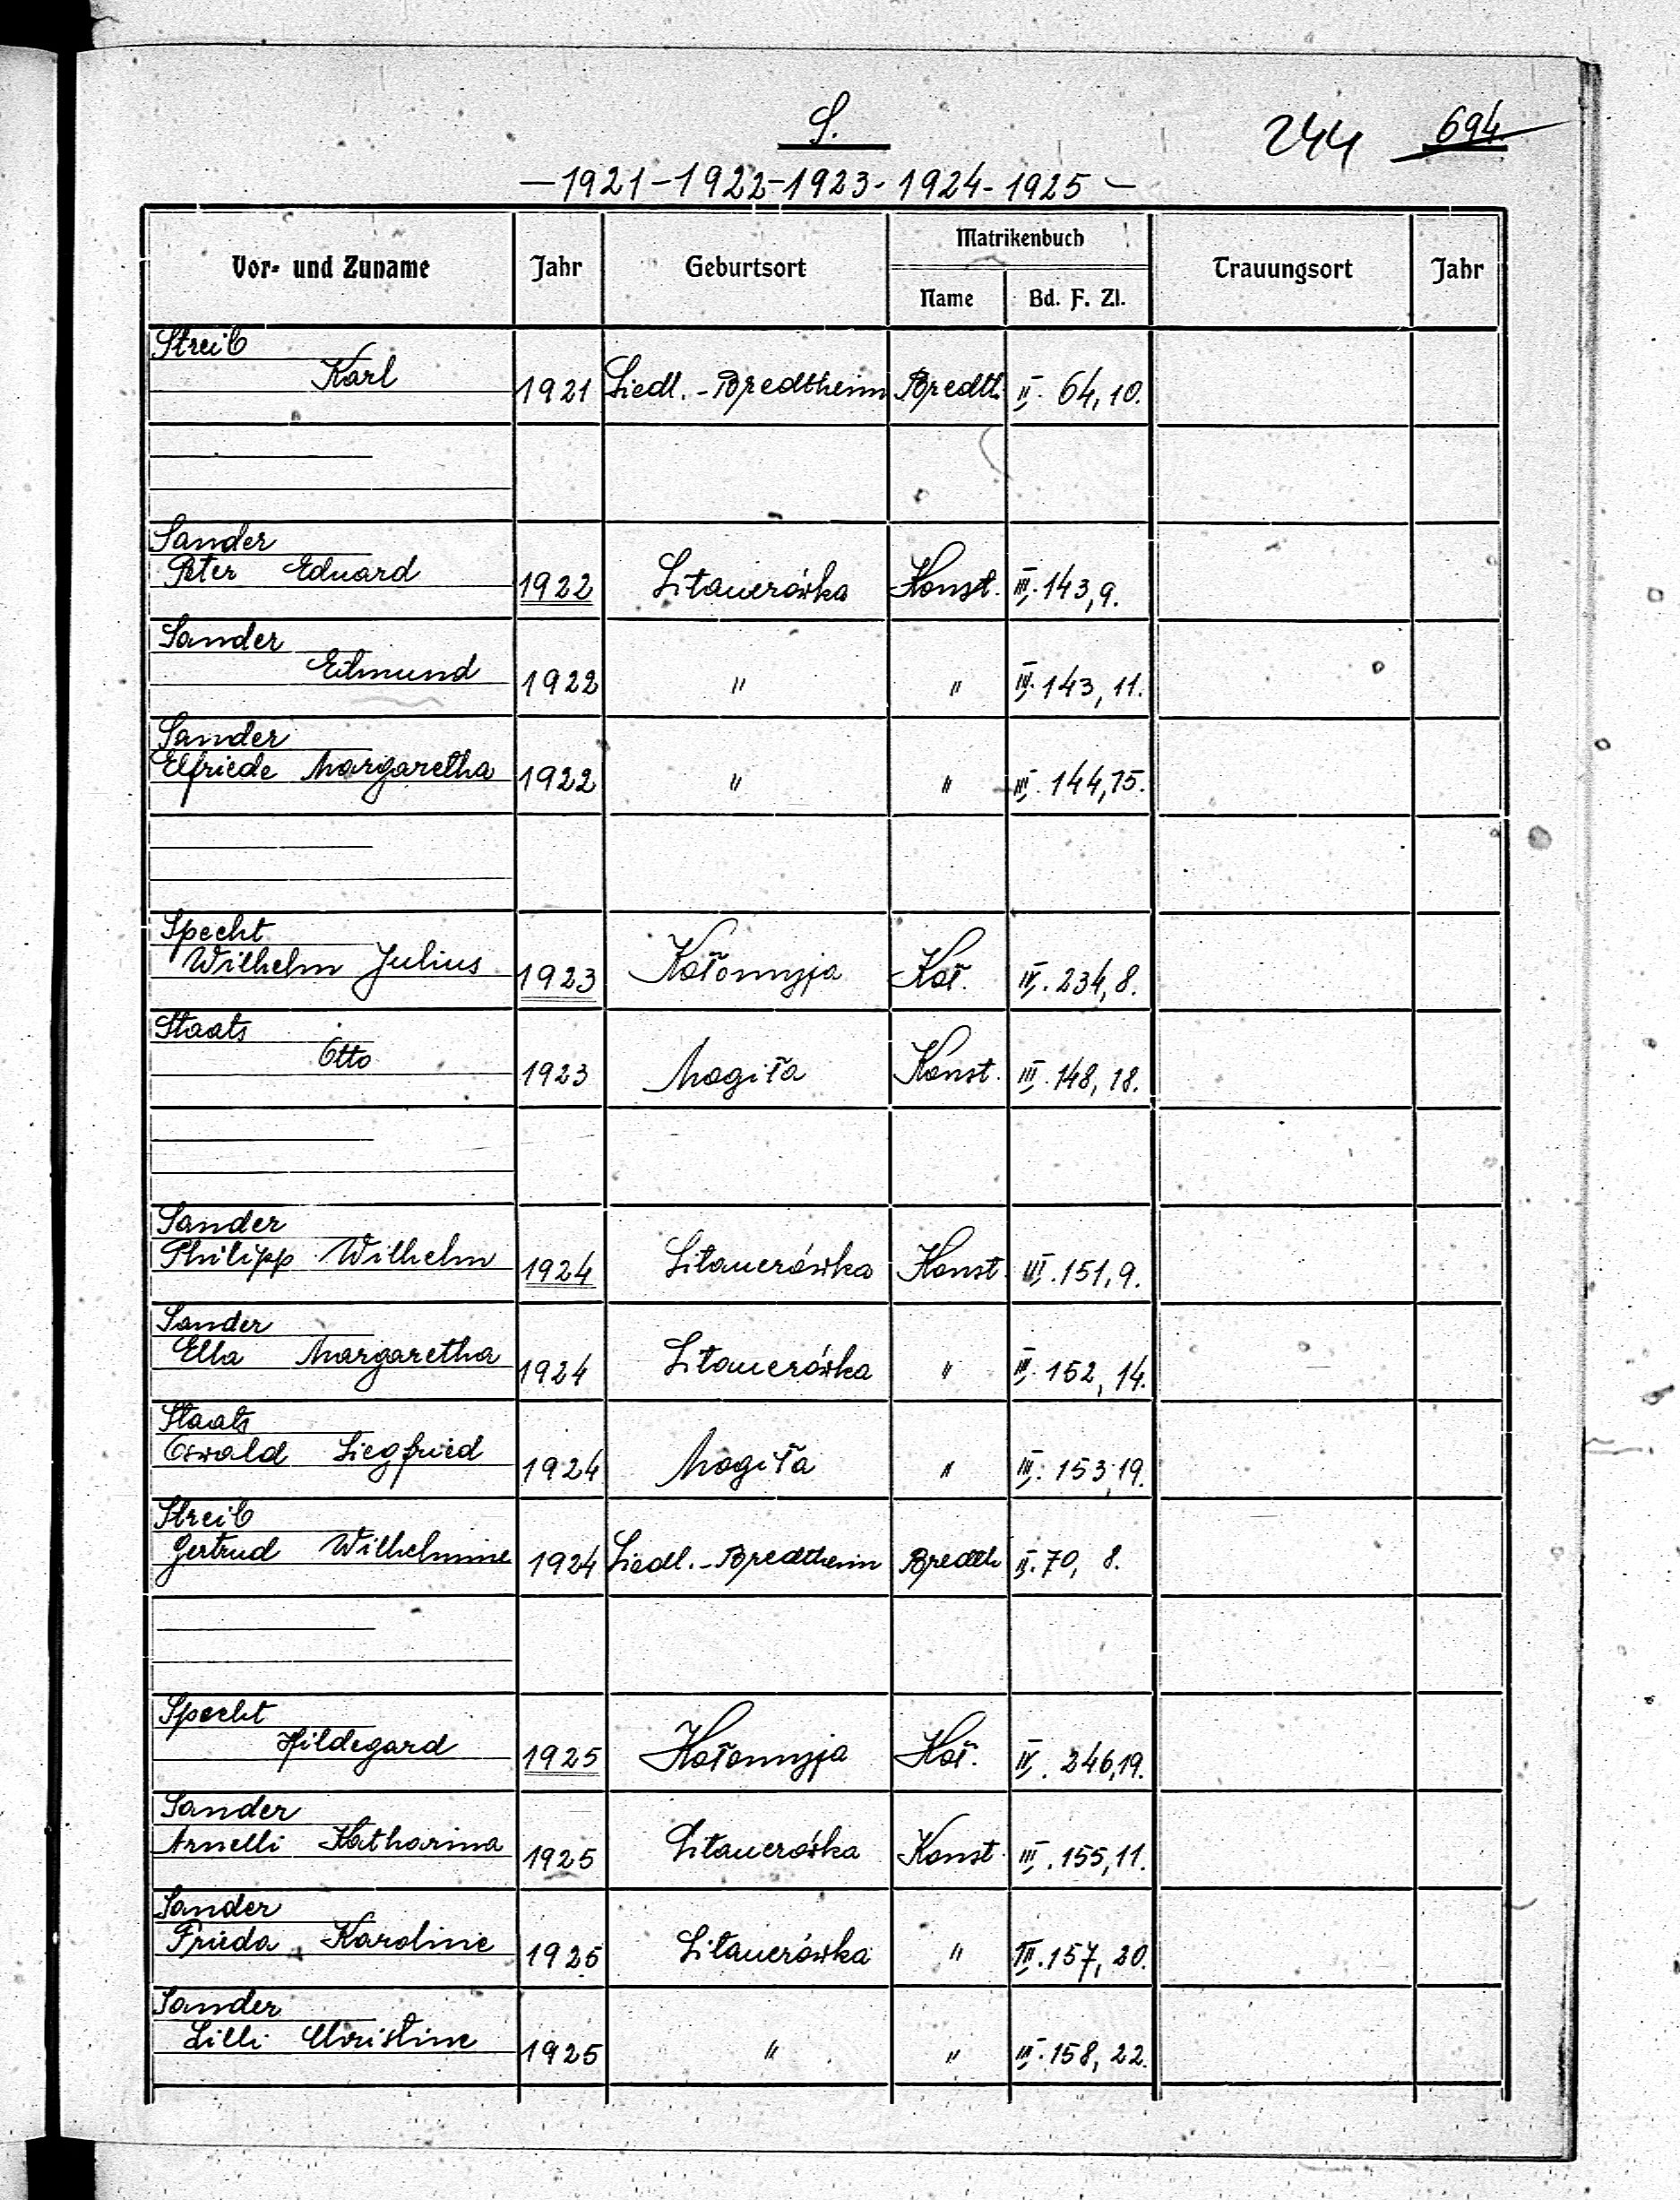 S.
244 694
— 1921 - 1922 - 1923 - 1924 - 1925 —
Vor- und Zuname Jahr Geburtsort Matrikenbuch Trauungsort Jahr
Name Bd. F. Zl.
Streib
Karl 1921 Siedl. - Bredtheim Bredth. II. 64, 10.
Sander
Peter Eduard 1922 Sitauerówka Konst. III. 143, 9.
Sander
Edmund 1922 " " III. 143, 11.
Sander
Elfriede Margaretha 1922 " " III. 144, 15.
Specht
Wilhelm Julius 1923 Kołomyja Koł. IV. 234, 8.
Staats
Otto 1923 Mogiła Konst. III. 148, 18.
Sander
Philipp Wilhelm 1924 Sitauerówka Konst. III. 151, 9.
Sander
Ella Margaretha 1924 Sitauerówka " III. 152, 14.
Staats
Oswald Siegfried 1924 Mogiła " III. 153, 19.
Streib
Gertrud Wilhelmine 1924 Siedl. - Bredtheim Bredth II. 70, 8.
Specht
Hildegard 1925 Kołomyja Koł. IV. 246, 19.
Sander
Arnelli Katharina 1925 Sitauerówka Konst. III. 155, 11.
Sander
Frieda Karoline 1925 Sitauerówka " III. 157, 20.
Sander
Lilli Christine 1925 " " III. 158, 22.